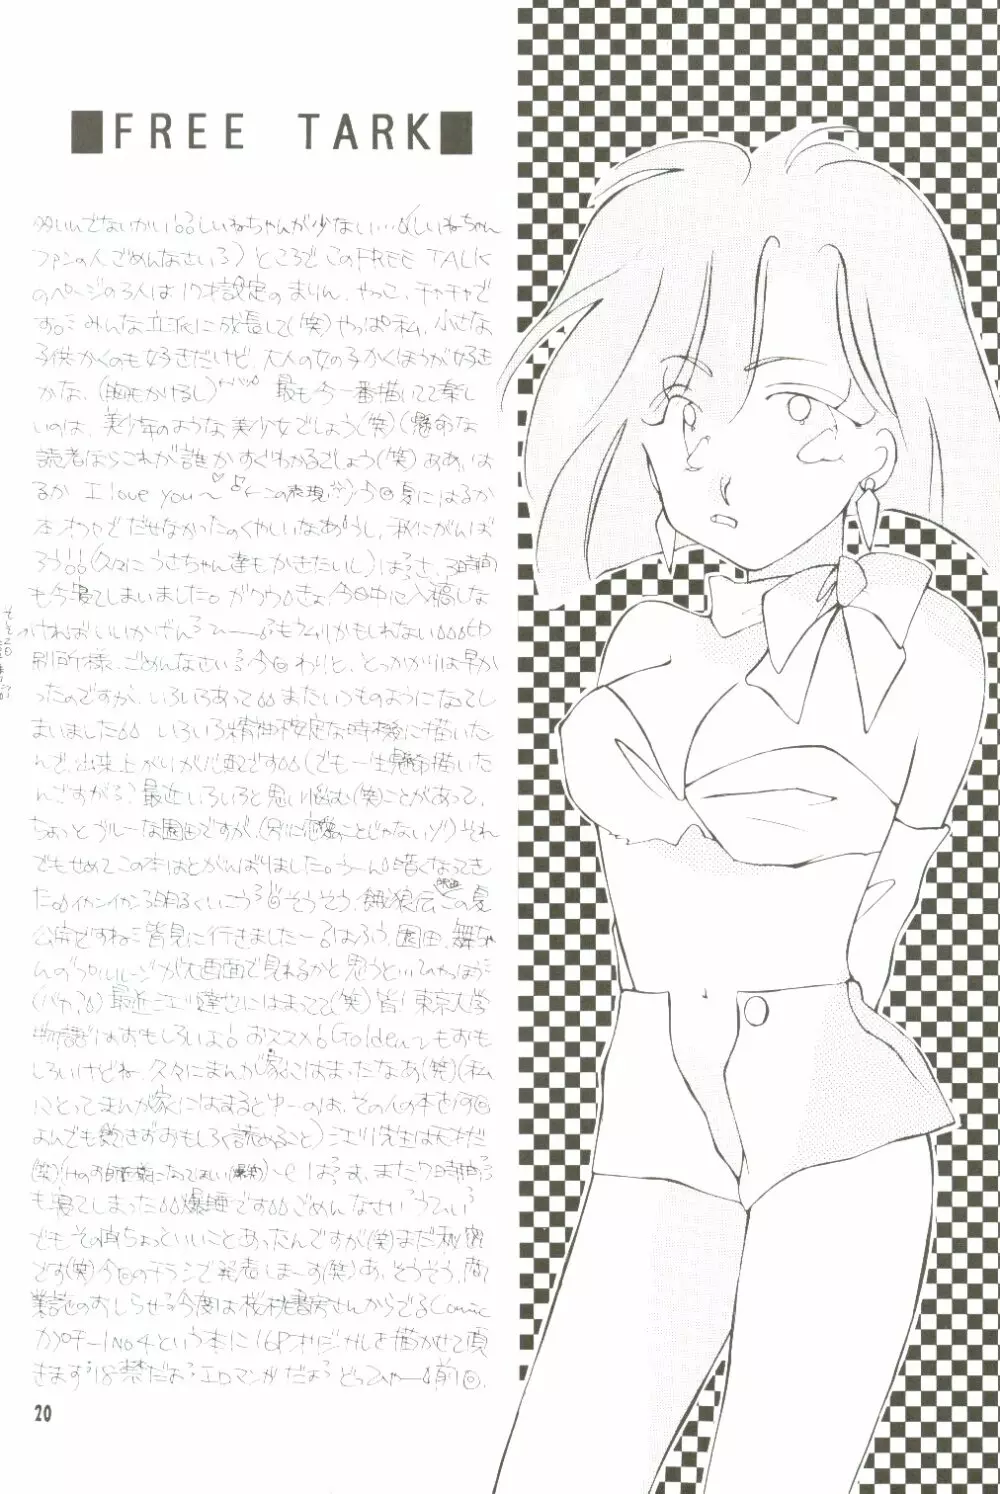 FREE TARK
多いんでないかい
しいねちゃんが少ない…(しいねちゃん
ファンの人ごめんなさい)ところでこのFREE TALK
のページの3人は17才設定のまりん、やっこ、チャチャで
す。みんな立派に成長して(笑)やっぱ私、小さな
子供かくのも好きだけど、大人の女の子かくほうが好き
かな、(胸もかけるし) 最も今一番描いてて楽し
いのは、美少年のような美少女でしょう(笑)(懸命な
読者ならこれが誰かすぐわかるでしょう(笑)ああ、は
るか I love you〜 この表現 今回夏にはるか
本オフセでだせなかったのくやしいなあ うし、秋にがんば
ろう(久々にうさちゃん達もかきたいし)はうさ、3時間
も今寝てしまいました。 今日中に入稿しな
ければいいかげん もしれない 印
刷所様、ごめんなさい 今回わりと、とっかかりは早か
ったのですが、いろいろあって またいつものようになってし
まいました いろいろ精神不安定な時期に描いた
んで、出来上がりが心配です(でも一生懸命描いた
んですがろ)最近いろいろと思い悩む(笑)ことがあって、
ちょっとブルーな園田ですが、(別に恋愛のことじゃないゾ)それ
でもせめてこの本はとがんばりました。う〜ん暗くなってき
た イカンイカン 明るくいこう そうそう、餓狼伝 この夏
公開ですね 皆見に行きました〜 園田、舞ちゃ
んの が大画面で見れるかと思うと…
(バカ?)最近江川達也にはまってて(笑)皆!東京大学
物語はおもしろいよ おススメ Golden〜もおも
しろいけどね、久々にまんが家にはまったなあ(笑)(私
にとってまんが家にはまるとゆーのは、その人の本を何回
よんでも飽きずおもしろく読めること)江川先生は天才だ
(笑) また7時間
も寝てしまった 爆睡です ごめんなさい
でもその直ちょっといいことあったんですが(笑)まだ秘密
です(笑)今回のチラシで発表しま〜す(笑)あ、そうそう、商
業誌のおしらせ 今度は桜桃書房さんからでるComic
カプチーノNo4という本に16Pオリジナルを描かせて頂
きます 18禁だよ エロマンガだよ どっひゃー 前回、
20